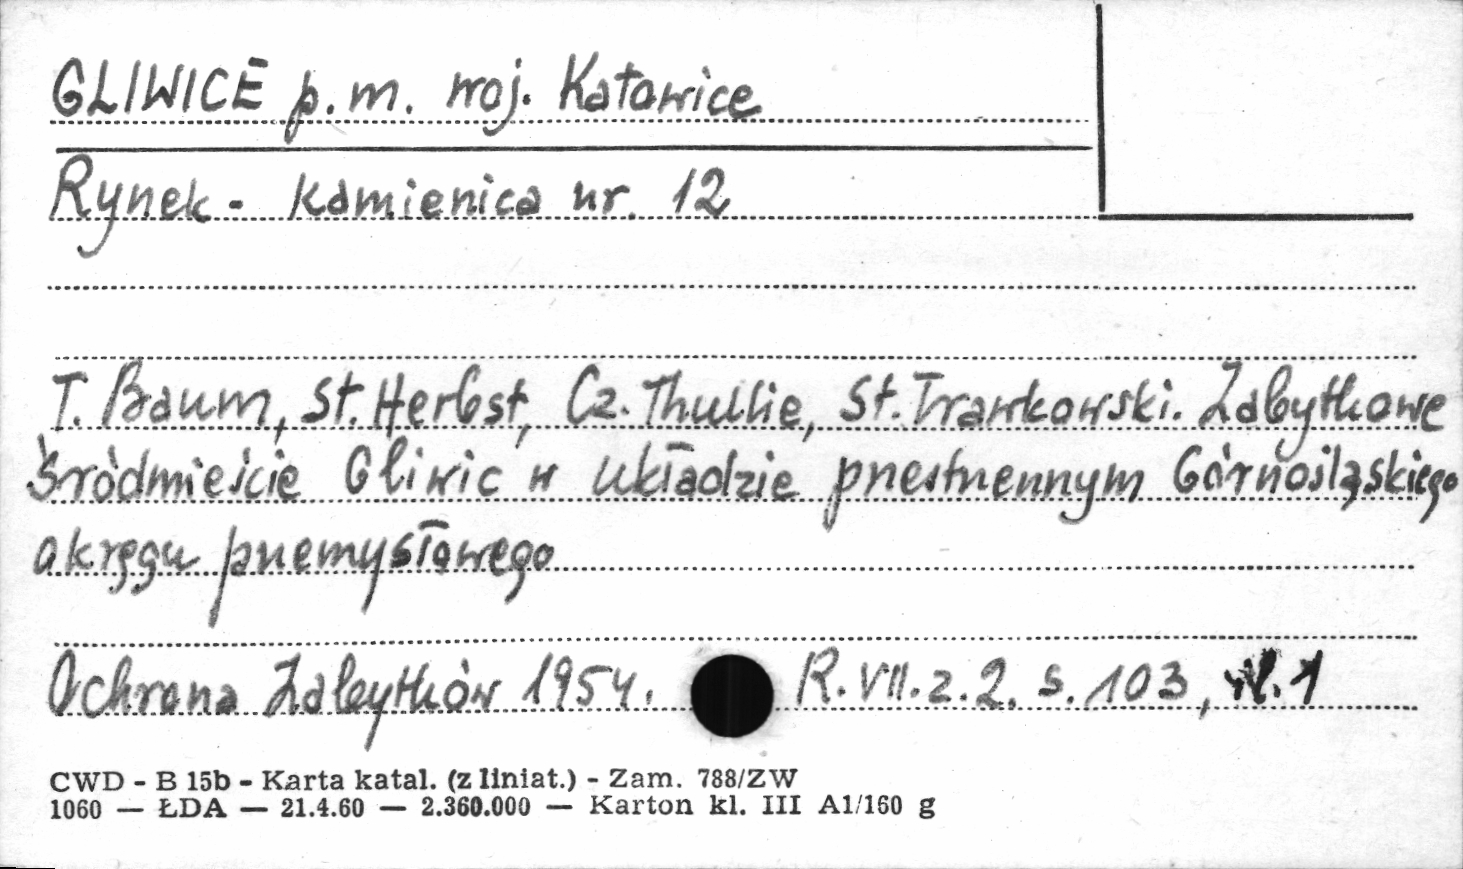 GLIWICE p.m. woj. Katowice
Rynek - kamienica nr. 12
T. Baum, St. Herbst, Cz. Thullie, St. Trawkowski. Zabytkowe
Śródmieście Gliwic w układzie przestrzennym Górnośląskiego
okręgu przemysłowego
Ochrona Zabytków 1954. R. VII. z. 2. s. 103, il. 1
CWD - B 15b - Karta katal. (z liniat.) - Zam. 788/ZW
1060 — ŁDA — 21.4.60 — 2.360.000 — Karton kl. III A1/160 g